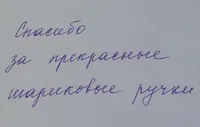 Спасибо
за прекрасные
шариковые ручки